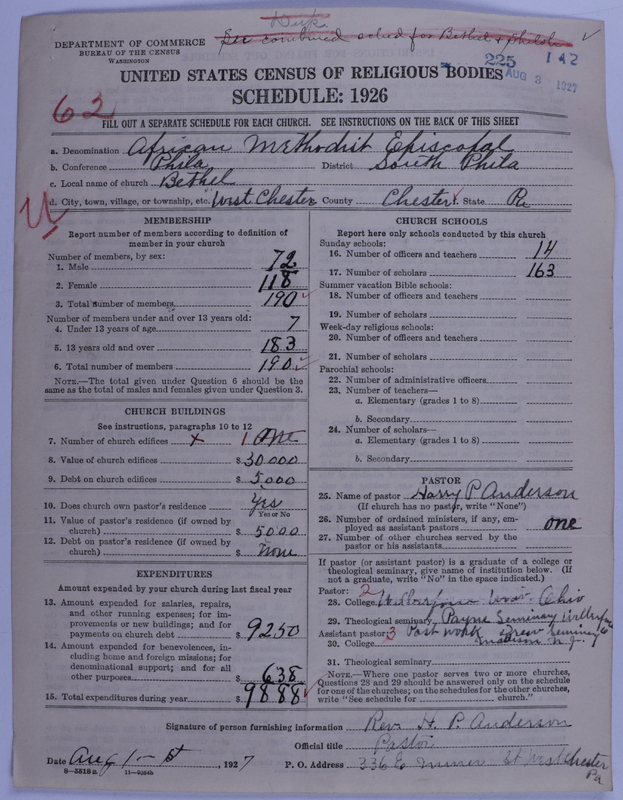 Dup
See combined sched for Bethel & Shiloh
DEPARTMENT OF COMMERCE
BUREAU OF THE CENSUS
WASHINGTON
225 142
AUG 3 1927
UNITED STATES CENSUS OF RELIGIOUS BODIES
SCHEDULE: 1926
62
FILL OUT A SEPARATE SCHEDULE FOR EACH CHURCH. SEE INSTRUCTIONS ON THE BACK OF THIS SHEET
a. Denomination African Methodist Episcopal
b. Conference Phila District South Phila
c. Local name of church Bethel
d. City, town, village, or township, etc. West Chester County Chester State Pa
MEMBERSHIP
Report number of members according to definition of
member in your church
Number of members, by sex:
1. Male 72
2. Female 118
3. Total number of members 190
Number of members under and over 13 years old:
4. Under 13 years of age 7
5. 13 years old and over 183
6. Total number of members 190
NOTE.—The total given under Question 6 should be the
same as the total of males and females given under Question 3.
CHURCH BUILDINGS
See instructions, paragraphs 10 to 12
7. Number of church edifices x 1 One
8. Value of church edifices $ 30000
9. Debt on church edifices $ 5,000
10. Does church own pastor's residence Yes
Yes or No
11. Value of pastor's residence (if owned by
church) $ 5000
12. Debt on pastor's residence (if owned by
church) $ None
EXPENDITURES
Amount expended by your church during last fiscal year
13. Amount expended for salaries, repairs,
and other running expenses; for im-
provements or new buildings; and for
payments on church debt $ 9250
14. Amount expended for benevolences, in-
cluding home and foreign missions; for
denominational support; and for all
other purposes $ 638
15. Total expenditures during year $ 9888
CHURCH SCHOOLS
Report here only schools conducted by this church
Sunday schools:
16. Number of officers and teachers 14
17. Number of scholars 163
Summer vacation Bible schools:
18. Number of officers and teachers
19. Number of scholars
Week-day religious schools:
20. Number of officers and teachers
21. Number of scholars
Parochial schools:
22. Number of administrative officers
23. Number of teachers—
a. Elementary (grades 1 to 8)
b. Secondary
24. Number of scholars—
a. Elementary (grades 1 to 8)
b. Secondary
PASTOR
25. Name of pastor Harry P Anderson
(If church has no pastor, write "None")
26. Number of ordained ministers, if any, em-
ployed as assistant pastors one
27. Number of other churches served by the
pastor or his assistants
If pastor (or assistant pastor) is a graduate of a college or
theological seminary, give name of institution below. (If
not a graduate, write "No" in the space indicated.)
Pastor: 2
28. College Wilberforce Univ. Ohio
29. Theological seminary Payne Seminary Wilberforce
Assistant pastor: 3 Post work Drew Seminary
30. College Madison N. J.
31. Theological seminary
NOTE.—Where one pastor serves two or more churches,
Questions 28 and 29 should be answered only on the schedule
for one of the churches; on the schedules for the other churches,
write "See schedule for church."
Signature of person furnishing information Rev. H. P. Anderson
Official title Pastor
Date Aug 1-st 1927 P. O. Address 336 E Miner St West Chester
Pa
8-5518a 11-9364b